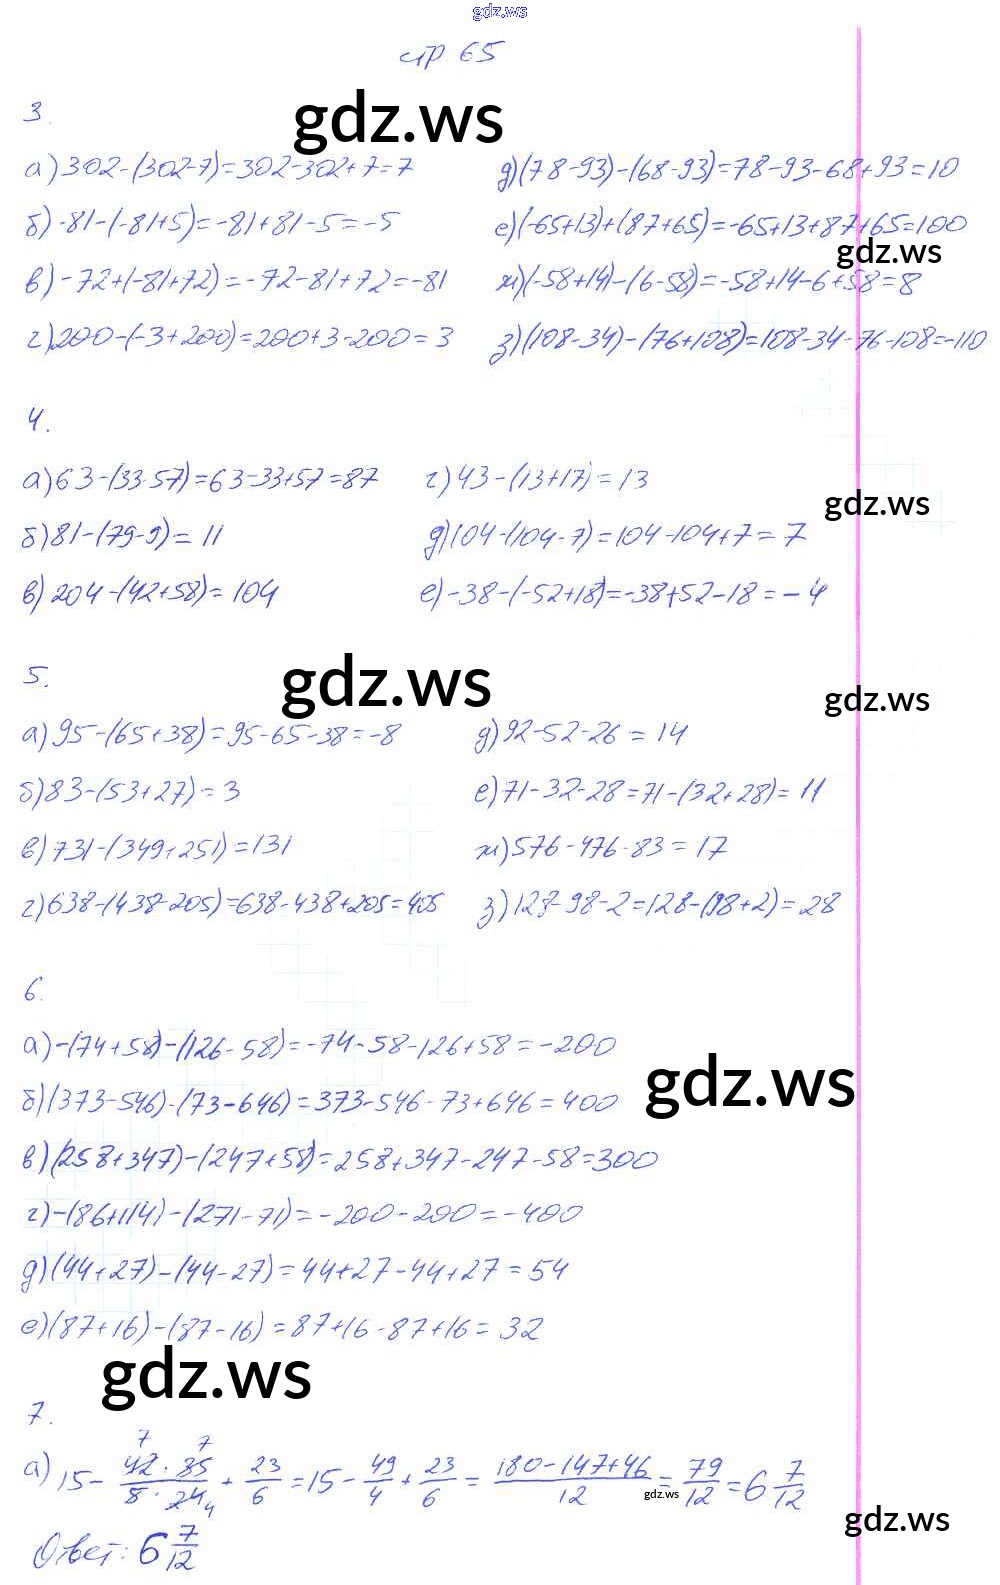 gdz.ws
стр. 65
3.
gdz.ws
а) 302-(302-7)=302-302+7=7
д) (78-93)-(68-93)=78-93-68+93=10
б) -81-(-81+5)=-81+81-5=-5
е) (-65+13)+(87+65)=-65+13+87+65=100
gdz.ws
в) -72+(-81+72)=-72-81+72=-81
ж) (-58+14)-(6-58)=-58+14-6+58=8
г) 200-(-3+200)=200+3-200=3
з) (108-34)-(76+108)=108-34-76-108=-110
4.
а) 63-(33-57)=63-33+57=87
г) 43-(13+17)=13
gdz.ws
б) 81-(79-9)=11
д) 104-(104-7)=104-104+7=7
в) 204-(42+58)=104
е) -38-(-52+18)=-38+52-18=-4
5.
gdz.ws
gdz.ws
а) 95-(65+38)=95-65-38=-8
д) 92-52-26=14
б) 83-(53+27)=3
е) 71-32-28=71-(32+28)=11
в) 731-(349+251)=131
ж) 576-476-83=17
г) 638-(438-205)=638-438+205=405
з) 128-98-2=128-(98+2)=28
6.
а) -(74+58)-(126-58)=-74-58-126+58=-200
gdz.ws
б) (373-546)-(73-646)=373-546-73+646=400
в) (258+347)-(247+58)=258+347-247-58=300
г) -(86+114)-(271-71)=-200-200=-400
д) (44+27)-(44-27)=44+27-44+27=54
е) (87+16)-(87-16)=87+16-87+16=32
gdz.ws
7.
7 7
а) 15 - 42·35/8·24 4 + 23/6 = 15 - 49/4 + 23/6 = 180-147+46/12 = 79/12 = 6 7/12
gdz.ws
gdz.ws
Ответ: 6 7/12